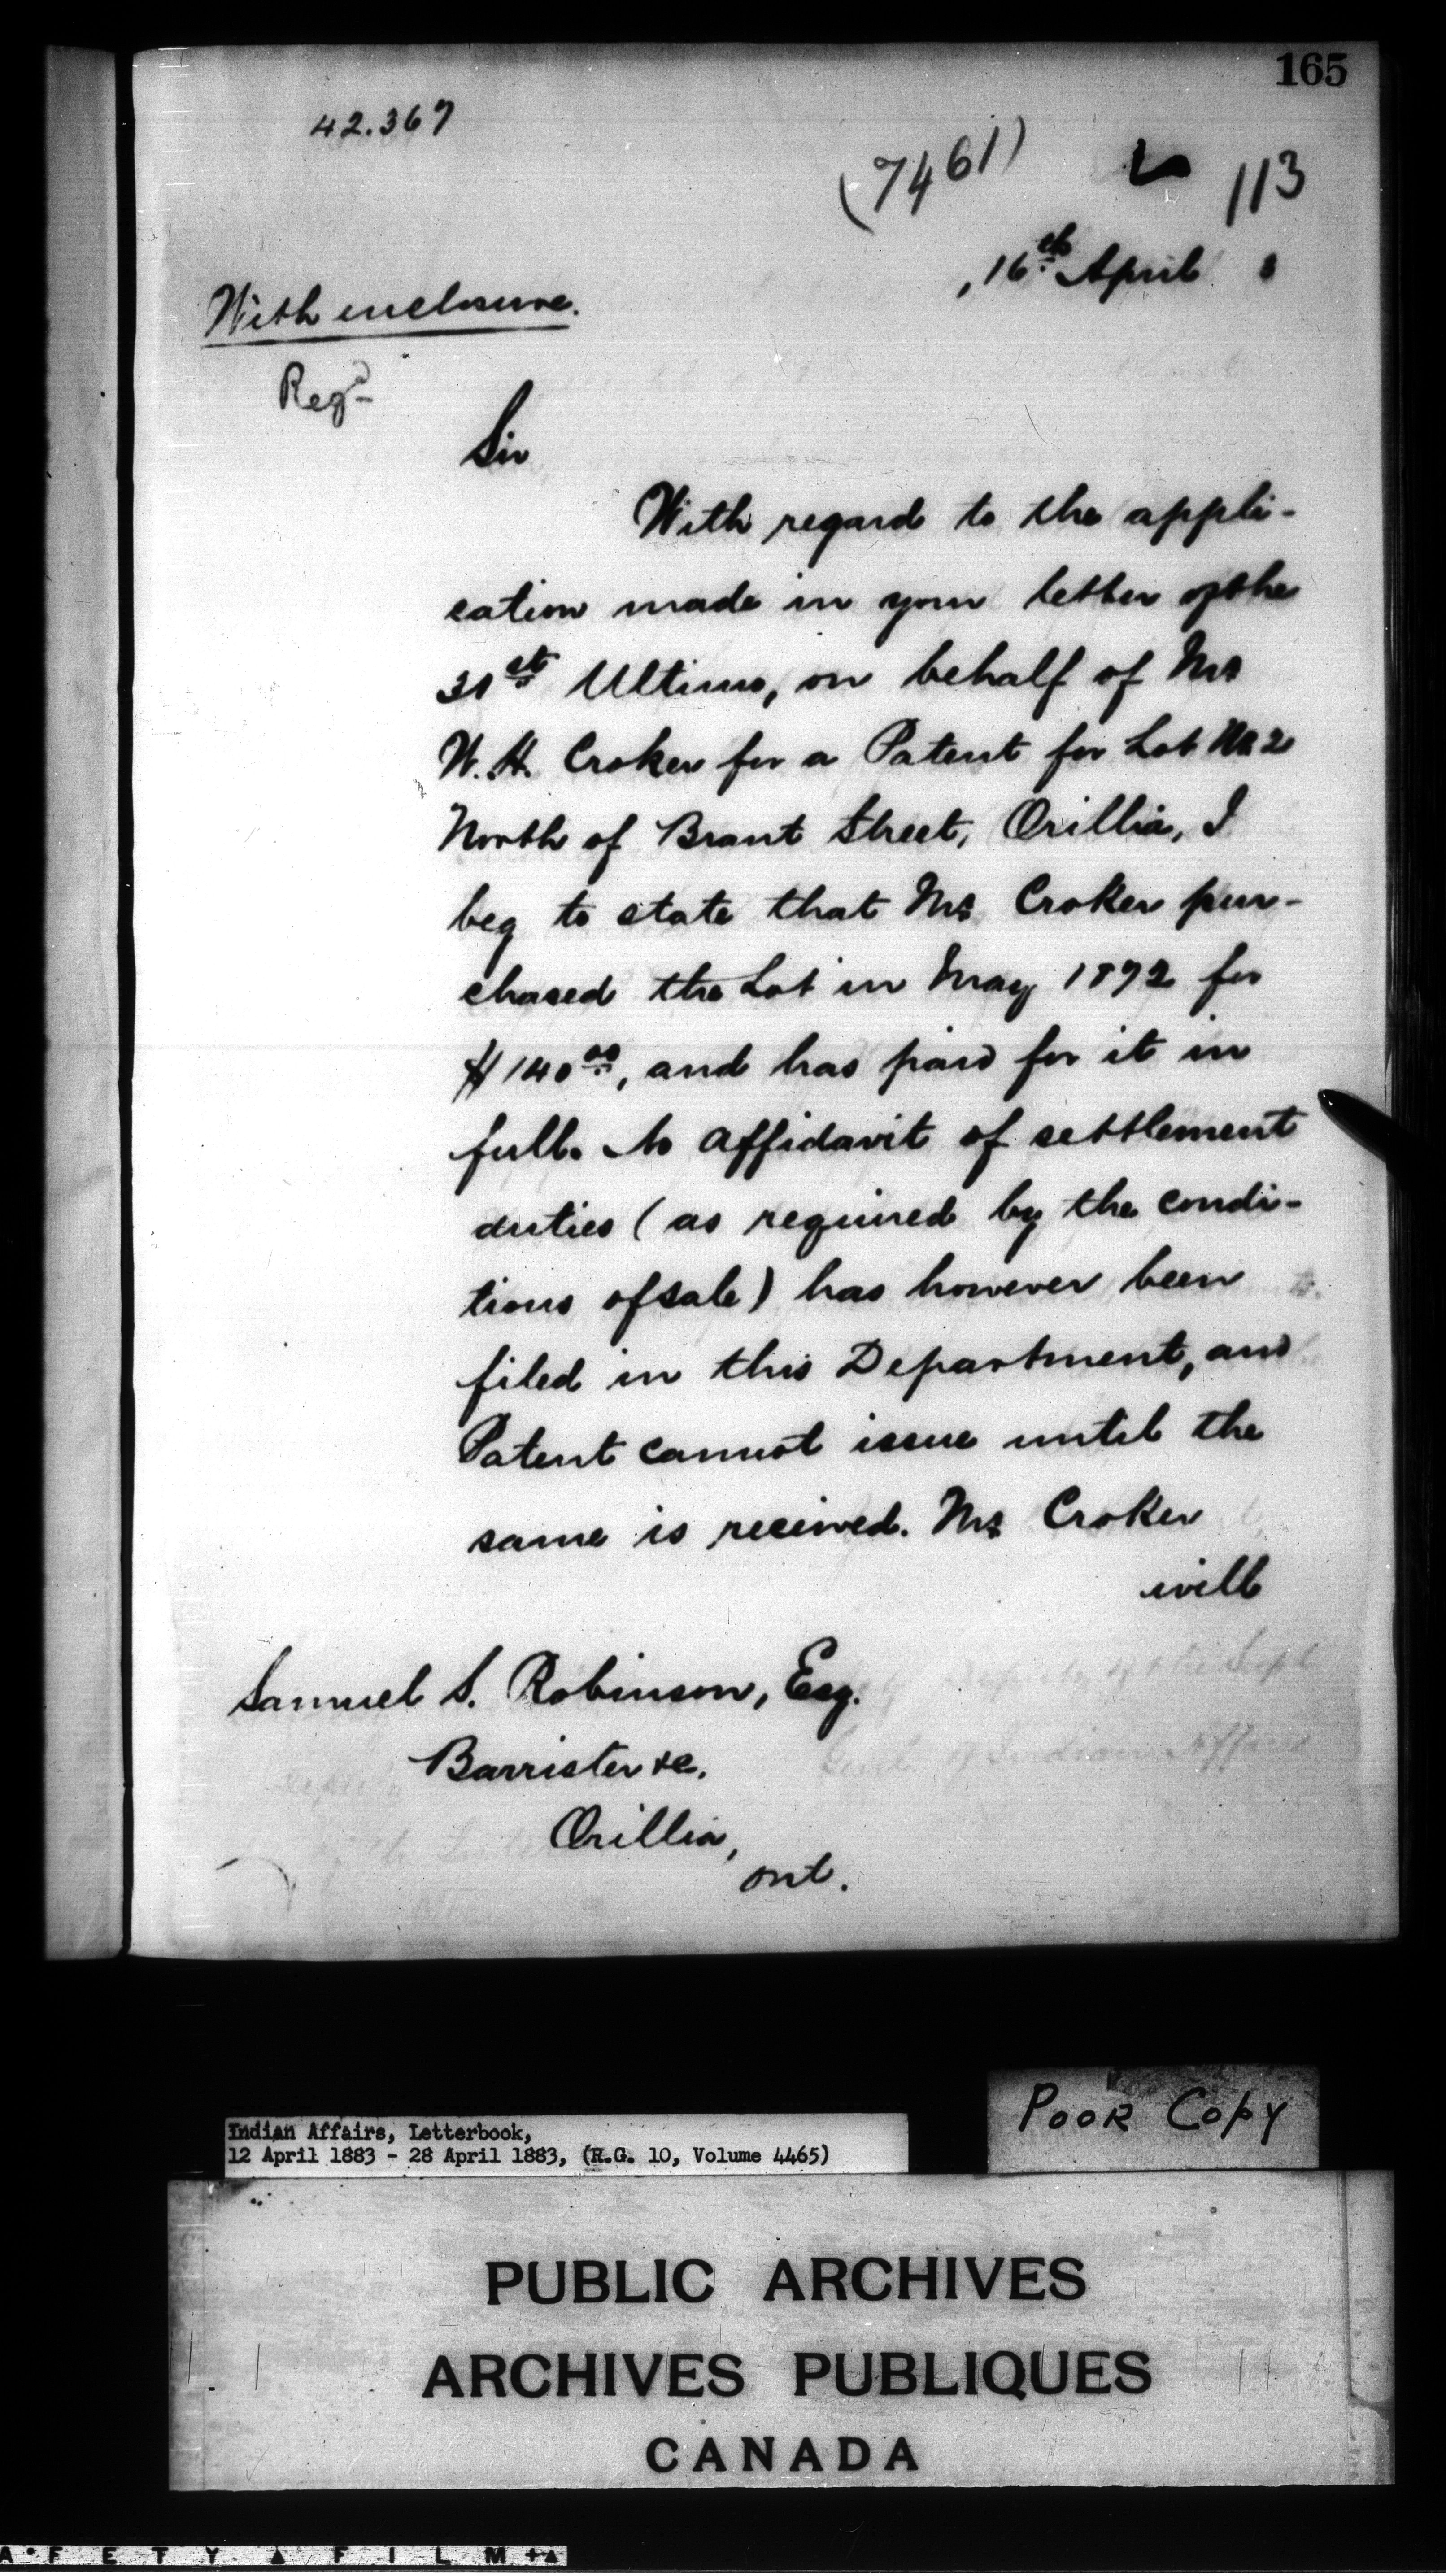 165
42.367
(7461)
113
16th April 3
With enclosure.
Regd
Sir
With regard to the appli-
cation made in your letter of the
31st Ultimo, on behalf of Mr
W. H. Croker for a Patent for Lot No 2
North of Brant Street, Orillia, I
beg to state that Mr Croker pur-
chased the Lot in May 1872 for
$140 00, and has paid for it in
full. No affidavit of settlement
duties (as required by the condi-
tions of sale) has however been
filed in this Department, and
Patent cannot issue until the
same is received. Mr Croker
will
Samuel S. Robinson, Esq.
Barrister &c.
Orillia,
Ont.
Poor Copy
Indian Affairs, Letterbook,
12 April 1883 - 28 April 1883, (R.G. 10, Volume 4465)
PUBLIC ARCHIVES
ARCHIVES PUBLIQUES
CANADA
AFETY FILM